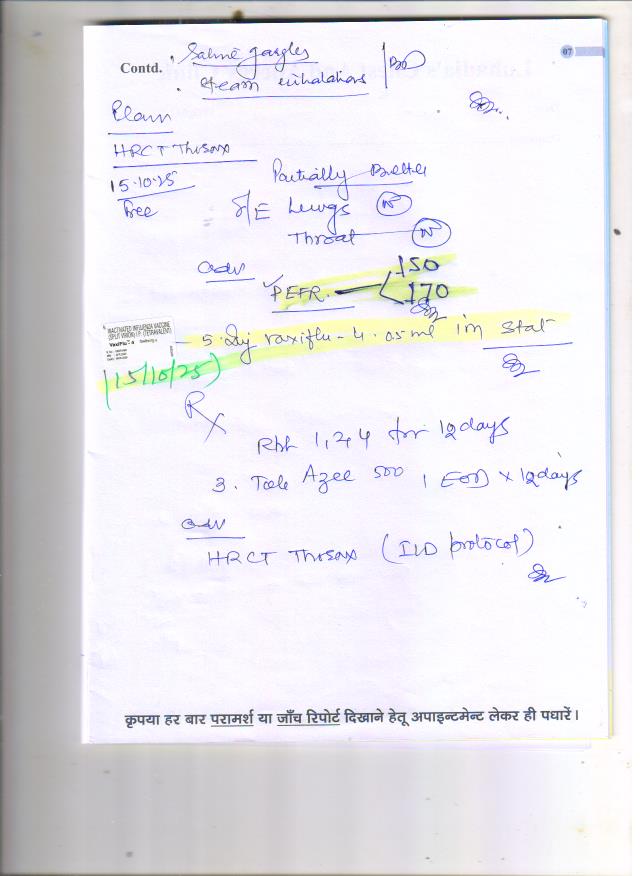 07
Contd. • Saline gargles
• Steam inhalations BD
Plan
HRCT Thorax
15.10.25
Free
Partially Better
O/E Lungs N
Throat N
adv
✓PEFR. — 150
170
INACTIVATED INFLUENZA VACCINE
(SPLIT VIRION) I.P. (TETRAVALENT)
VaxiFlu-4
5. Inj vaxiflu-4 .05ml im stat
(15/10/25)
Rx
Rpt 1,2,4 for 12days
3. Tab Azee 500 1 EOD × 12days
adv
HRCT Thorax (ILD protocol)
कृपया हर बार परामर्श या जाँच रिपोर्ट दिखाने हेतू अपाइन्टमेन्ट लेकर ही पधारें।